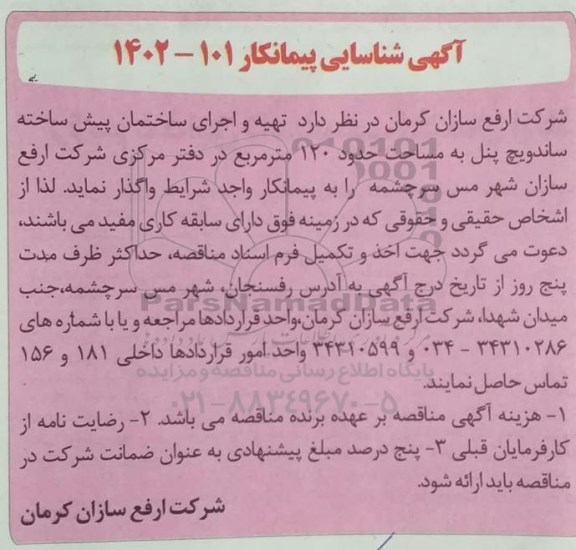 آگهی شناسایی پیمانکار ۱۰۱ - ۱۴۰۲
شرکت ارفع سازان کرمان در نظر دارد تهیه و اجرای ساختمان پیش ساخته
ساندویچ پنل به مساحت حدود ۱۲۰ مترمربع در دفتر مرکزی شرکت ارفع
سازان شهر مس سرچشمه را به پیمانکار واجد شرایط واگذار نماید. لذا از
اشخاص حقیقی و حقوقی که در زمینه فوق دارای سابقه کاری مفید می باشند،
دعوت می گردد جهت اخذ و تکمیل فرم اسناد مناقصه، حداکثر ظرف مدت
پنج روز از تاریخ درج آگهی به آدرس رفسنجان، شهر مس سرچشمه،جنب
میدان شهدا، شرکت ارفع سازان کرمان،واحد قراردادها مراجعه و یا با شماره های
۳۴۳۱۰۲۸۶ - ۰۳۴ و ۳۴۳۱۰۵۹۹ واحد امور قراردادها داخلی ۱۸۱ و ۱۵۶
تماس حاصل نمایند.
۱- هزینه آگهی مناقصه بر عهده برنده مناقصه می باشد. ۲- رضایت نامه از
کارفرمایان قبلی ۳- پنج درصد مبلغ پیشنهادی به عنوان ضمانت شرکت در
مناقصه باید ارائه شود.
شرکت ارفع سازان کرمان
ParsNamadData
پایگاه اطلاع رسانی مناقصه و مزایده
۰۲۱-۸۸۳۴۹۶۷۰-۵